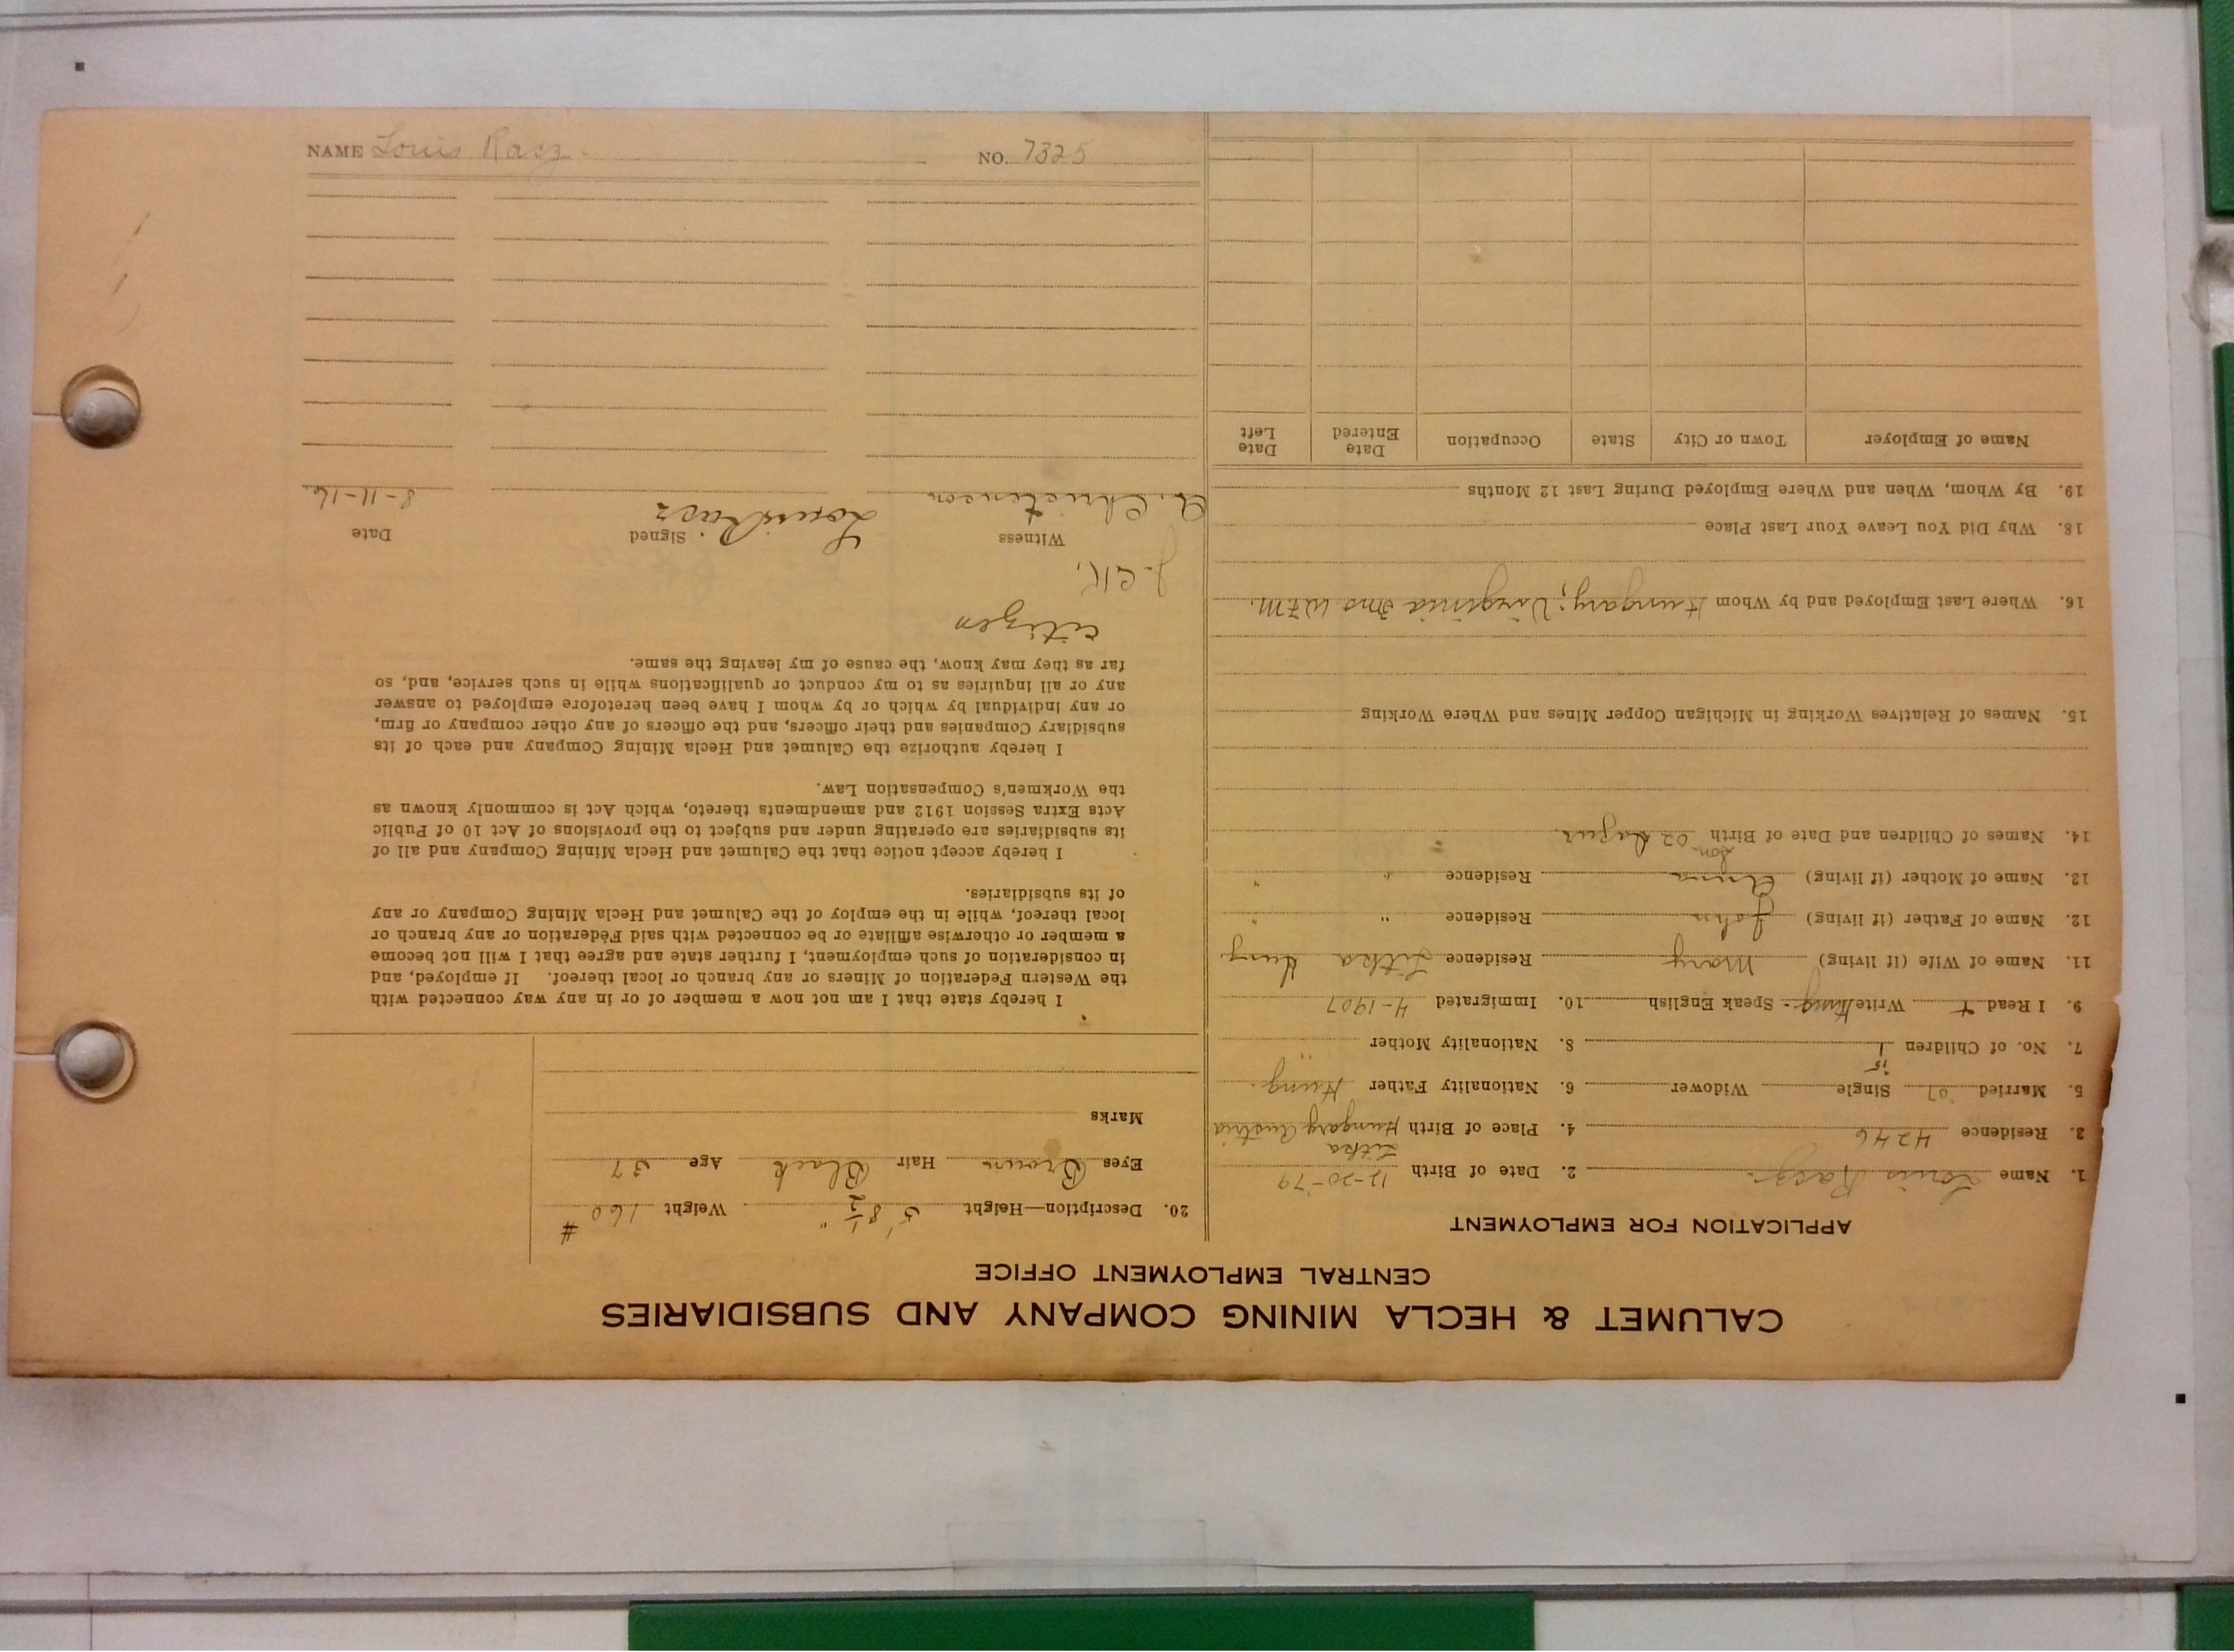 CALUMET & HECLA MINING COMPANY AND SUBSIDIARIES
CENTRAL EMPLOYMENT OFFICE
APPLICATION FOR EMPLOYMENT
1. Name Louis Racz. 2. Date of Birth 12-20-'79
3. Residence 4246 4. Place of Birth Hungary Austria
5. Married '07 Single Widower 6. Nationality Father Hung.
7. No. of Children 1 8. Nationality Mother "
9. I Read + Write Hung. Speak English 10. Immigrated 4-1907
11. Name of Wife (if living) Mary Residence Hung.
12. Name of Father (if living) John Residence " "
13. Name of Mother (if living) Anna Residence " "
14. Names of Children and Date of Birth
15. Names of Relatives Working in Michigan Copper Mines and Where Working
16. Where Last Employed and by Whom Hungary; Virginia
18. Why Did You Leave Your Last Place
19. By Whom, When and Where Employed During Last 12 Months
Name of Employer Town or City State Occupation Date Entered Date Left
20. Description—Height 5' 8 1/2" Weight 160 #
Eyes Brown Hair Black Age 37
Marks
I hereby state that I am not now a member of or in any way connected with
the Western Federation of Miners or any branch or local thereof. If employed, and
in consideration of such employment, I further state and agree that I will not become
a member or otherwise affiliate or be connected with said Federation or any branch or
local thereof, while in the employ of the Calumet and Hecla Mining Company or any
of its subsidiaries.
I hereby accept notice that the Calumet and Hecla Mining Company and all of
its subsidiaries are operating under and subject to the provisions of Act 10 of Public
Acts Extra Session 1912 and amendments thereto, which Act is commonly known as
the Workmen's Compensation Law.
I hereby authorize the Calumet and Hecla Mining Company and each of its
subsidiary Companies and their officers, and the officers of any other company or firm,
or any individual by which or by whom I have been heretofore employed to answer
any or all inquiries as to my conduct or qualifications while in such service, and, so
far as they may know, the cause of my leaving the same.
citizen
Witness Signed Date
Louis Racz
8-11-16
NAME Louis Racz. NO. 7325